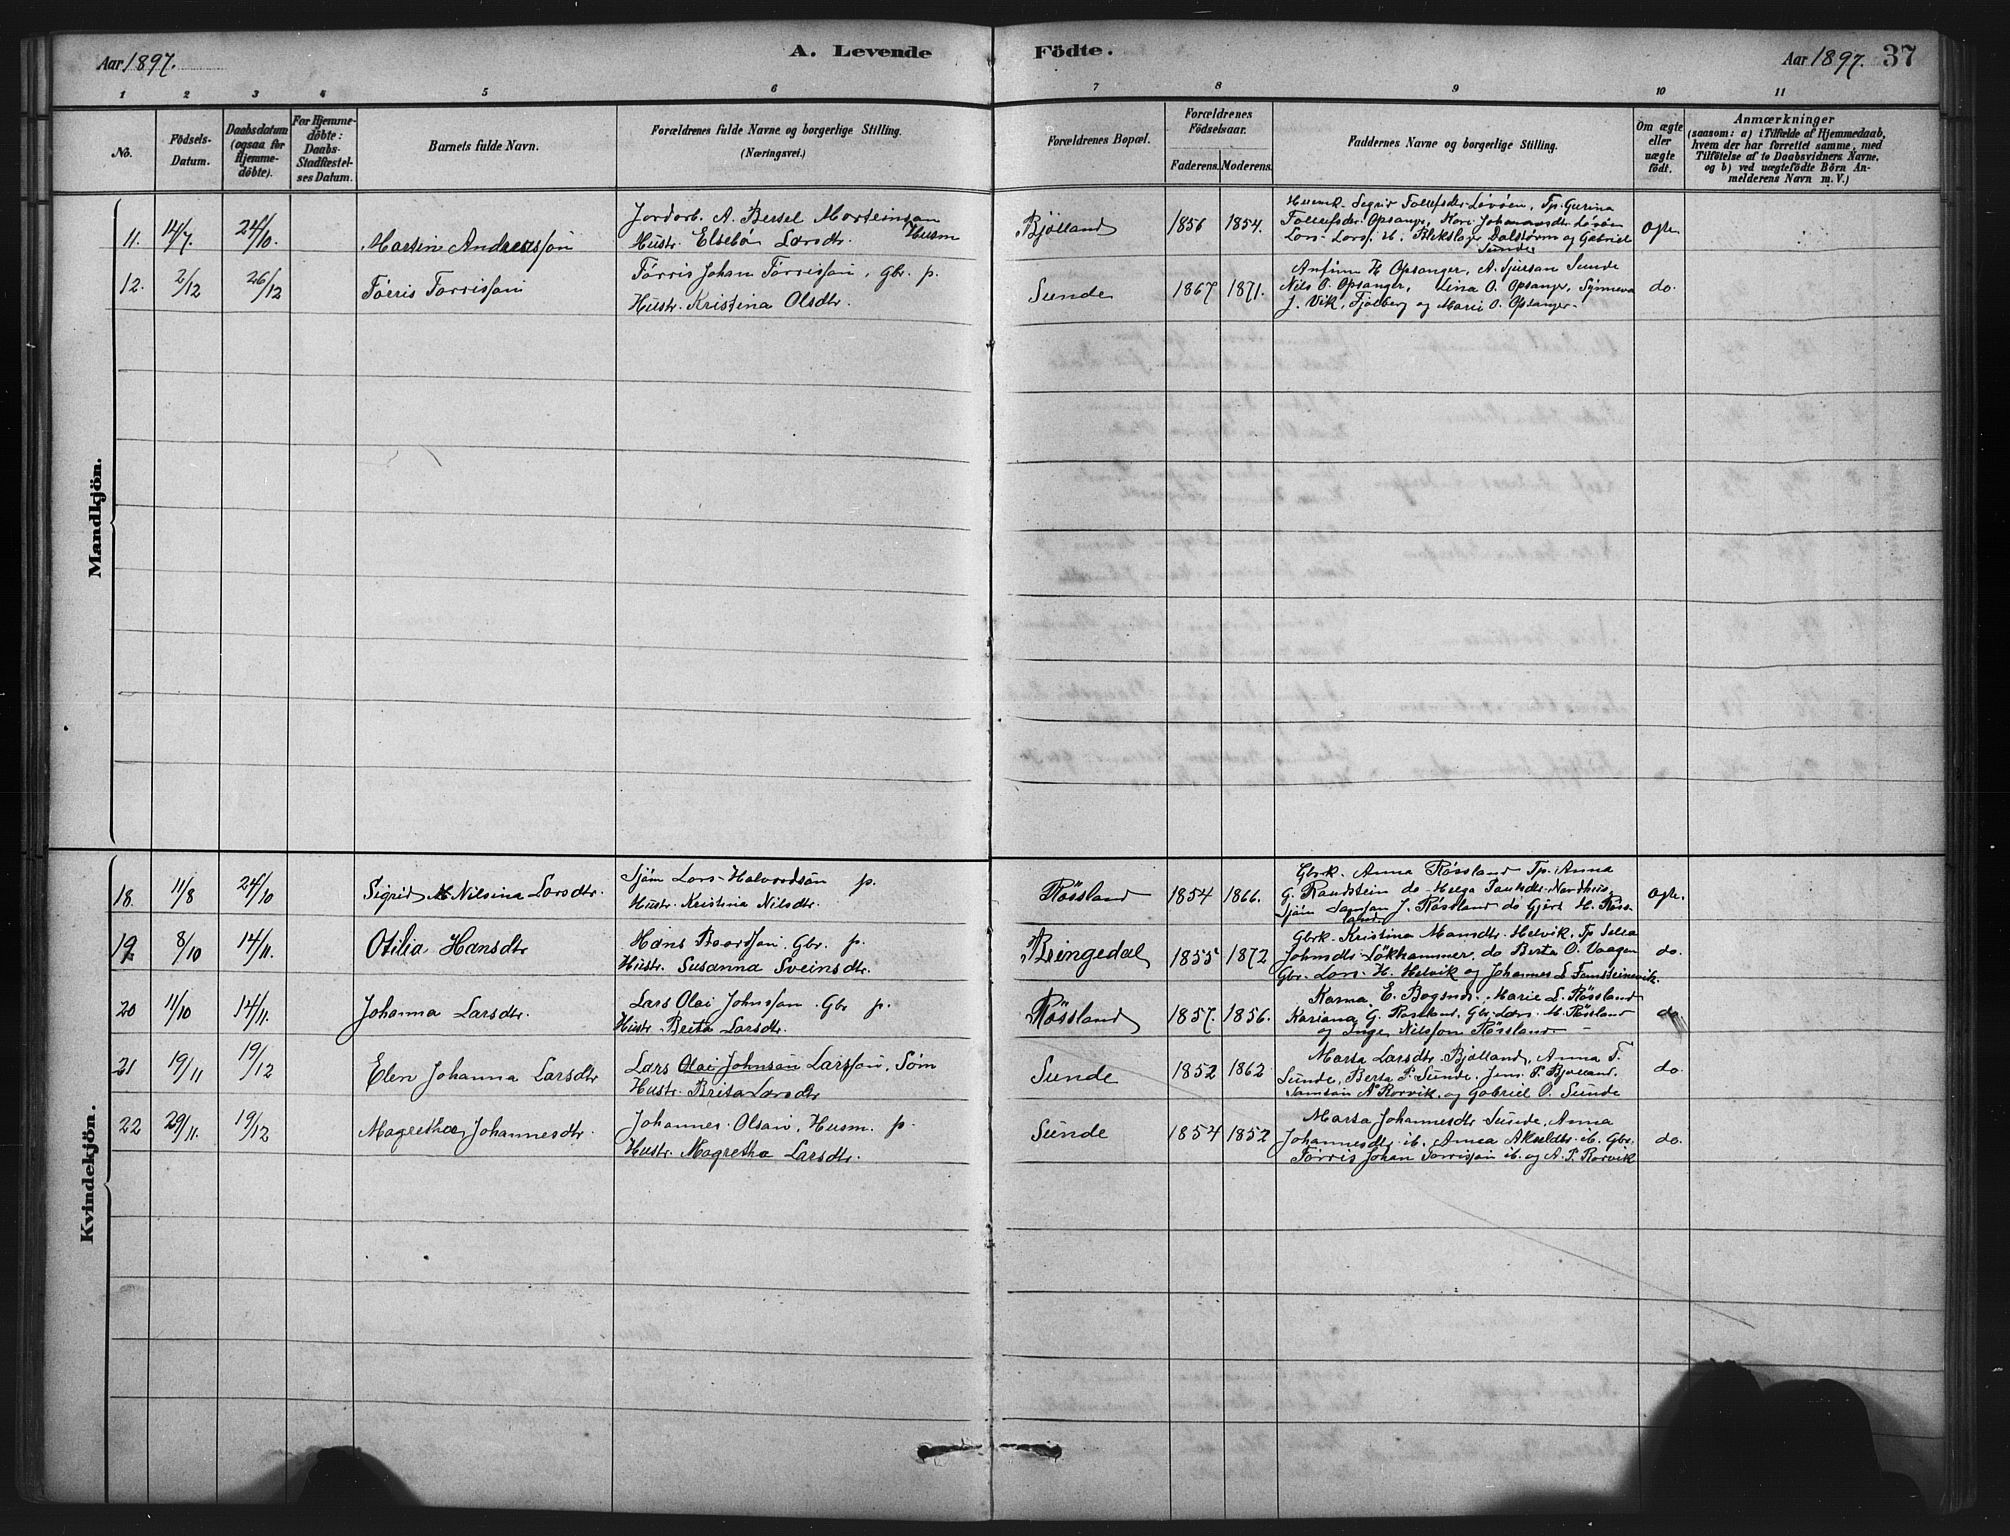 Aar 1897.
A. Levende Födte.
Aar 1897. 37
1 2 3 4 5 6 7 8 9 10 11
No.
Födsels-Datum.
Daabsdatum (ogsaa for Hjemme-döbte).
For Hjemme-döbte: Daabs-Stadfæstel-ses Datum.
Barnets fulde Navn.
Forældrenes fulde Navne og borgerlige Stilling.
(Næringsvei.)
Forældrenes Bopæl.
Forældrenes Födselsaar.
Faderens. Moderens.
Faddernes Navne og borgerlige Stilling.
Om ægte eller uægte födt.
Anmærkninger
(saasom: a) i Tilfælde af Hjemmedaab, hvem der har forrettet samme, med Tilföielse af to Daabsvidners Navne, og b) ved uægtefödte Börn An-melderens Navn m. V.)
Mandkjön.
11. 14/7. 24/10. Martin Andreassøn
Jordarb. A. Bersel Morteinsøn Husm
Hustr. Elsebø Larsdtr.
Bjølland 1856 1854.
Tollefsdtr. Løvøen, Tp. Gurina
Tollefsdtr. Opsanger,
Lars Larss. Dalstrøm og Gabriel
Sunde
Ægte
12. 2/12 26/12 Tørris Tørrissøn
Tørris Johan Tørrissøn, Gbr. p.
Hustr. Kristina Olsdtr.
Sunde 1867 1871.
Anfinn H Opsanger, A. Sjursøn Sunde
Nils O. Opsanger, Lina O. Opsanger, Synneva
J. Vik, Fjelberg og Marie O. Opsanger.
do.
Kvindekjön.
18. 11/8 24/10 Sigrid Nilsina Larsdtr.
Sjøm Lars Halvordsøn p.
Hustr. Kristina Nilsdtr.
Røssland 1854 1866.
Gbrk. Anna Røssland Tp. Anna
G. Randstein do Helga
Sjøm Samson J. Røssland do Gjert H. Røss-
land
Ægte.
19. 8/10 14/11. Otilia Hansdtr
Hans Baardsøn, Gbr. p.
Hustr. Susanna Sveinsdtr.
Ringedal 1855 1872
Gbrk. Kristina Mamdtr. Helvik, Tp
Johnsdtr Løkhammer, do Berta O. Vaagen
Gbr. Lars H. Helvik og Johannes L
do.
20 11/10 14/11. Johanna Larsdtr.
Lars Olai Johnssøn Gbr p.
Hustr. Brita Larsdtr.
Røssland 1857. 1856.
Karna E. Bogsnes, Marie L. Røssland
Kariana G. Røssland, Gbr. Lars M. Røssland
og Inge Nilssøn Røssland
do
21 19/11 19/12 Elen Johanna Larsdtr
Lars Olai Johnsøn Larssøn, Søm
Hustr. Brita Larsdtr
Sunde 1852 1862
Marta Larsdtr. Bjølland, Anna T.
Sunde, Berta P. Sunde, Jens T. Bjølland
Samson A Rørvik, og Gabriel O. Sunde
do.
22 29/11. 19/12 Magretha Johannesdtr.
Johannes Olsøn, Husm. p.
Hustr. Magretha Larsdtr.
Sunde 1854 1852
Marta Johannesdtr Sunde, Anna
Johannesdtr ib. Anna Akseldtr. ib. Gbr.
Tørris Johan Tørrissøn ib. og A. P. Rørvik
do.